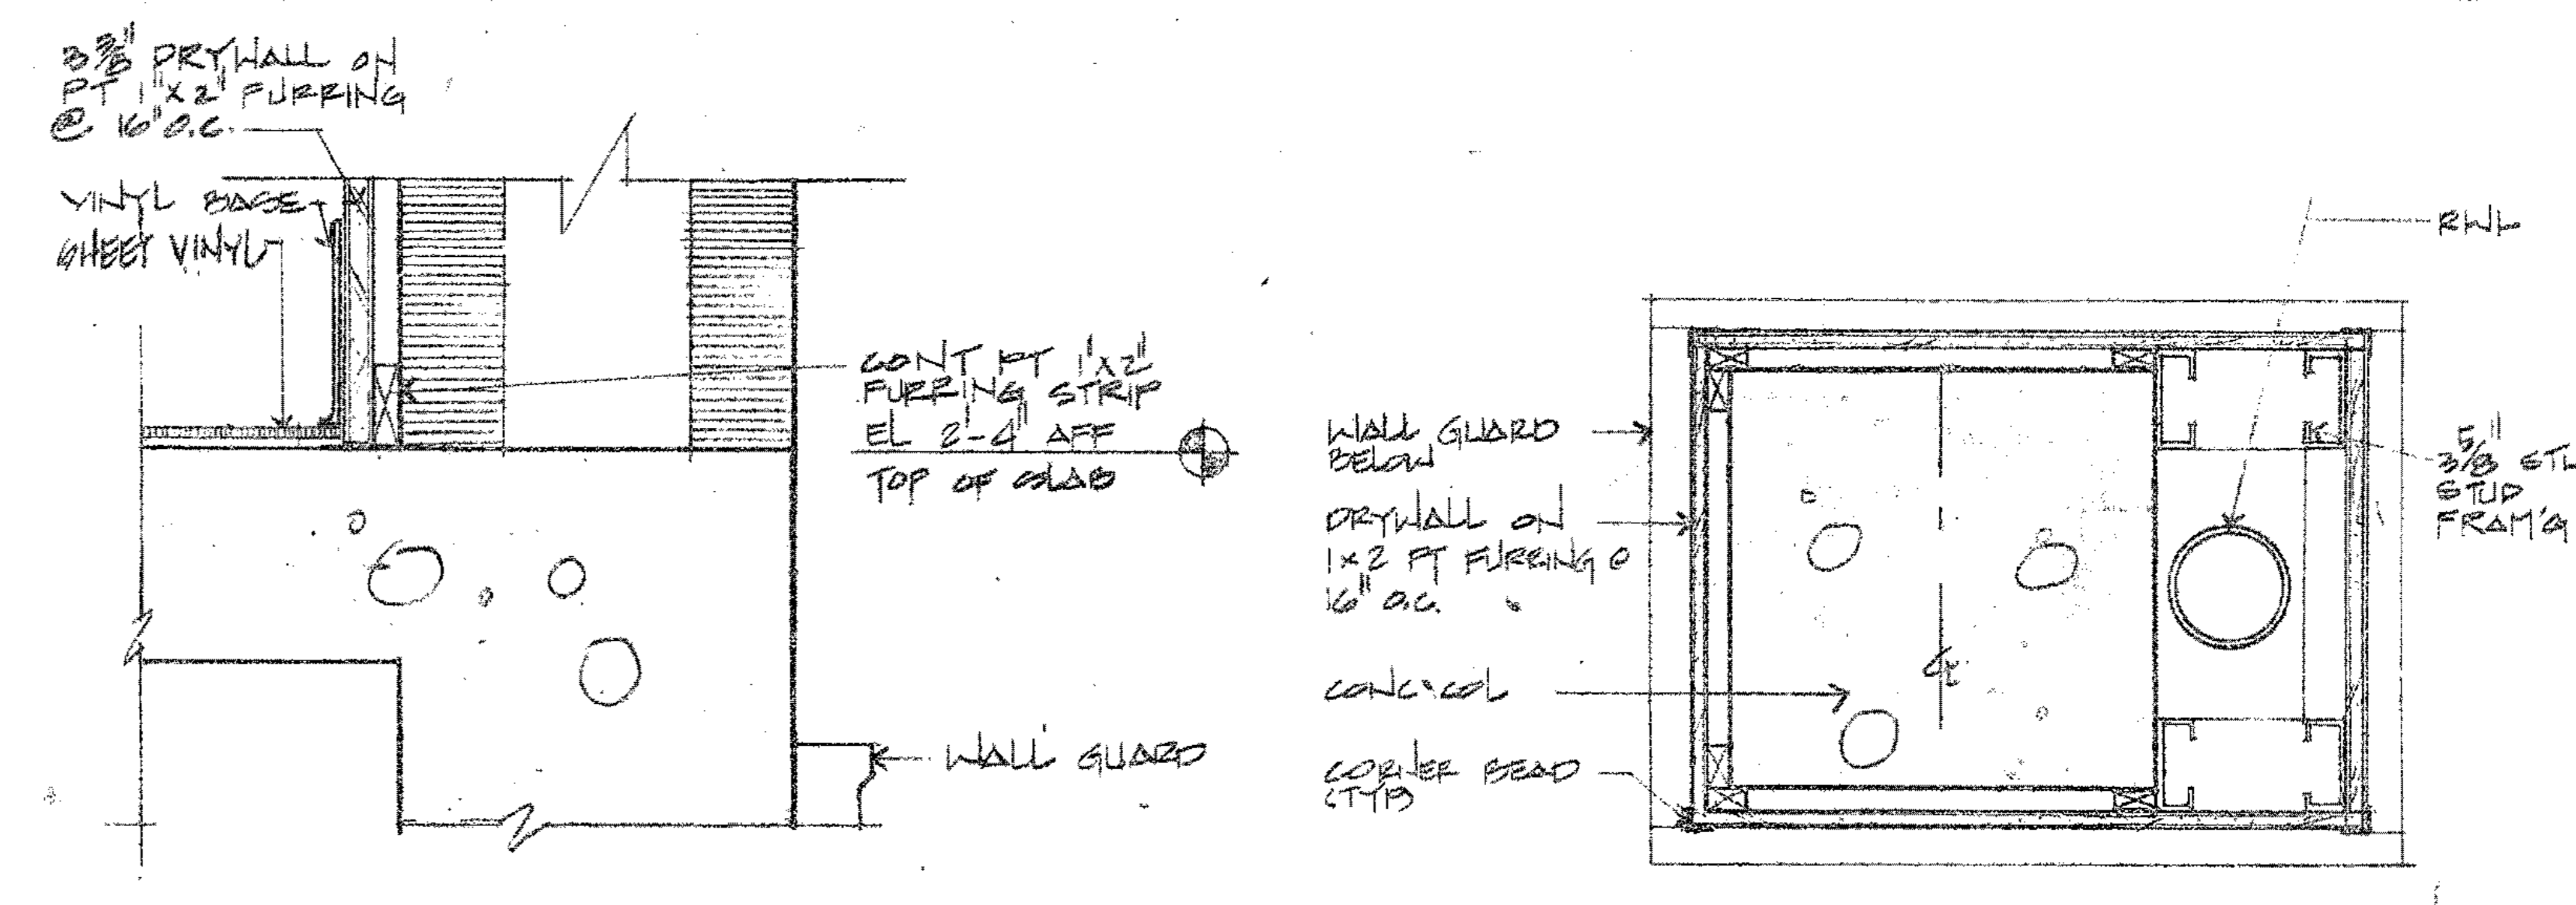 3 3/8" DRYWALL ON
PT 1"X2" FURRING
@ 16" O.C.
VINYL BASE
SHEET VINYL
CONT PT 1"X2"
FURRING STRIP
EL 2'-4" AFF
TOP OF SLAB
WALL GUARD
RWL
WALL GUARD
BELOW
DRYWALL ON
1X2 PT FURRING @
16" O.C.
CONC. COL
CORNER BEAD
(TYP)
℄
3 5/8" STL
STUD
FRAM'G